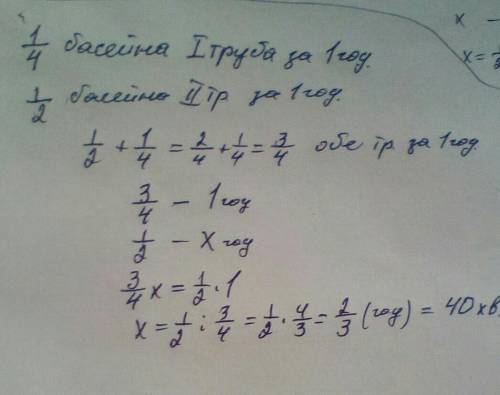 x -
x =
1/4 басейна I труба за 1 год.
1/2 басейна II тр. за 1 год.
1/2 + 1/4 = 2/4 + 1/4 = 3/4 обе тр. за 1 год.
3/4 - 1 год
1/2 - x год
3/4 x = 1/2 · 1
x = 1/2 : 3/4 = 1/2 · 4/3 = 2/3 (год) = 40 хв.